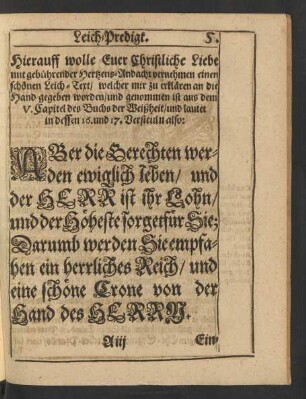 Leich-Predigt. 5.
Hierauff wolle Euer Christliche Liebe
mit gebührender Hertzens-Andacht vernehmen einen
schönen Leich-Text/ welcher mir zu erklären an die
Hand gegeben worden/ und genommen ist aus dem
V. Capitel des Buchs der Weißheit/ und lautet
in dessen 16. und 17. Versiculn also:
ABer die Gerechten wer-
den ewiglich leben/ und
der HERR ist ihr Lohn/
und der Höheste sorget für Sie;
Darumb werden Sie empfa-
hen ein herrliches Reich/ und
eine schöne Crone von der
Hand des HERRN.
A iij Ein